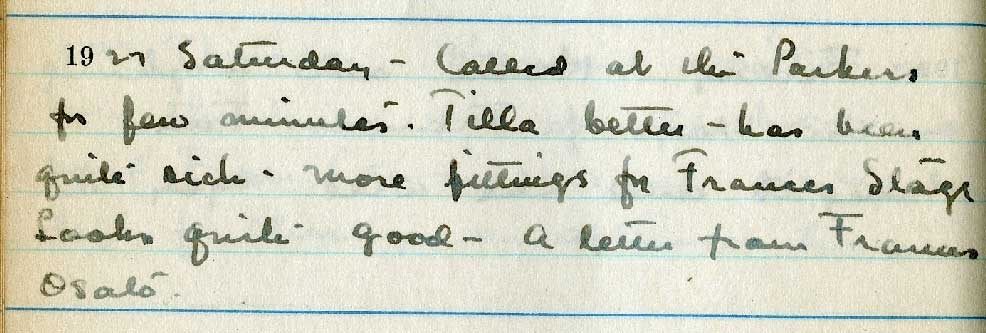 1927 Saturday - Called at the Parkers
for few minutes. Tilla better - has been
quite sick - more fittings for Frances Stage
Looks quite good - A letter from Frances
Osato.